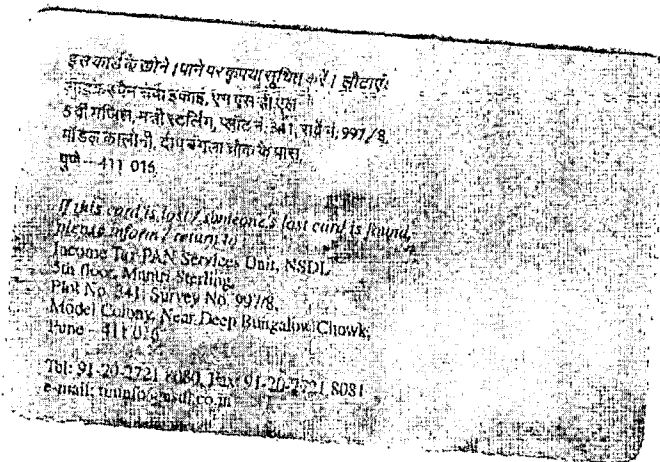 इस कार्ड के खोने / पाने पर कृपया सूचित करें / लौटाएं:
आयकर पैन सेवा इकाई, एन एस डी एल
5 वीं मंजिल, मंत्री स्टर्लिंग, प्लॉट नं. 341, सर्वे नं. 997/8,
मॉडल कालोनी, दीप बंगला चौक के पास,
पुणे - 411 016.
If this card is lost / someone's lost card is found,
please inform / return to :
Income Tax PAN Services Unit, NSDL
5th floor, Mantri Sterling,
Plot No. 341, Survey No. 997/8,
Model Colony, Near Deep Bungalow Chowk,
Pune - 411 016.
Tel: 91-20-2721 8080, Fax: 91-20-2721 8081
e-mail: tininfo@nsdl.co.in